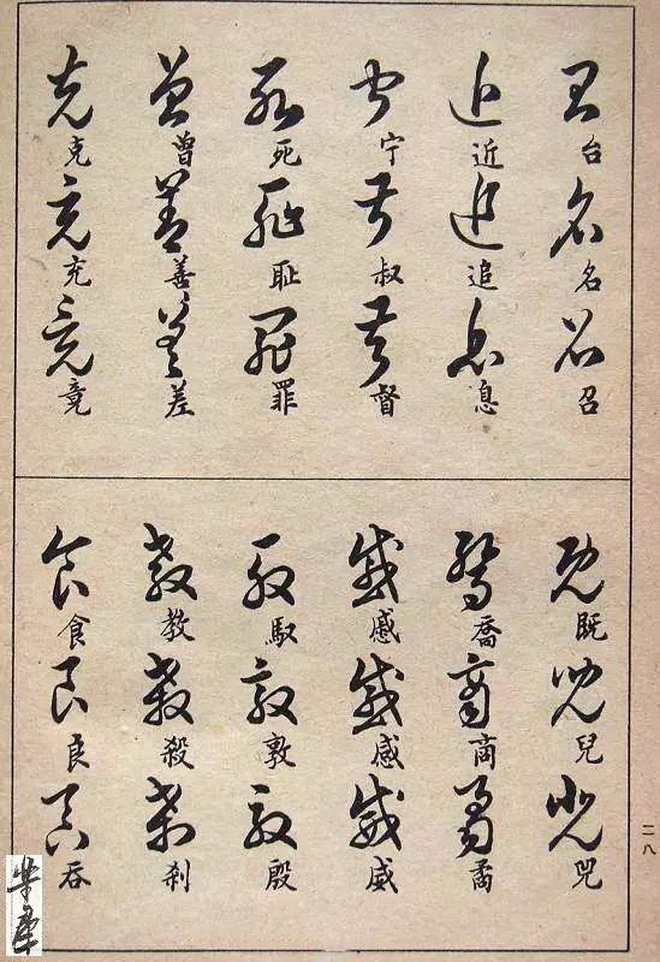 台名召
近追息
宁叔督
死耻罪
曾善差
克充竟
既兒兕
喬商矞
慼感威
馭敦殷
教殺刹
食良吞
二八